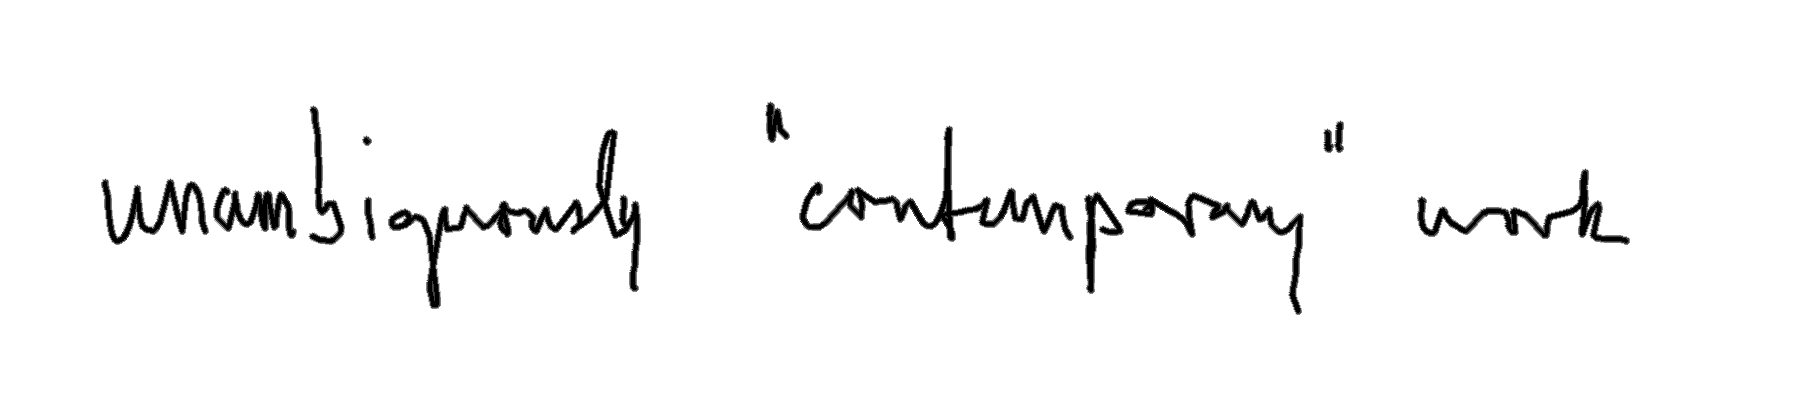 unambiguously "contemporary" work